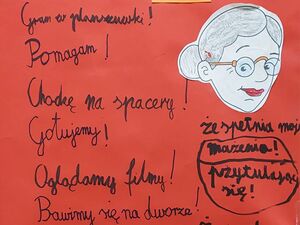 Gram w planszówki!
Pomagam!
Chodzę na spacery!
Gotujemy!
Oglądamy filmy!
Bawimy się na dworze!
że spełnia moje
marzenia!
przytulając
się!